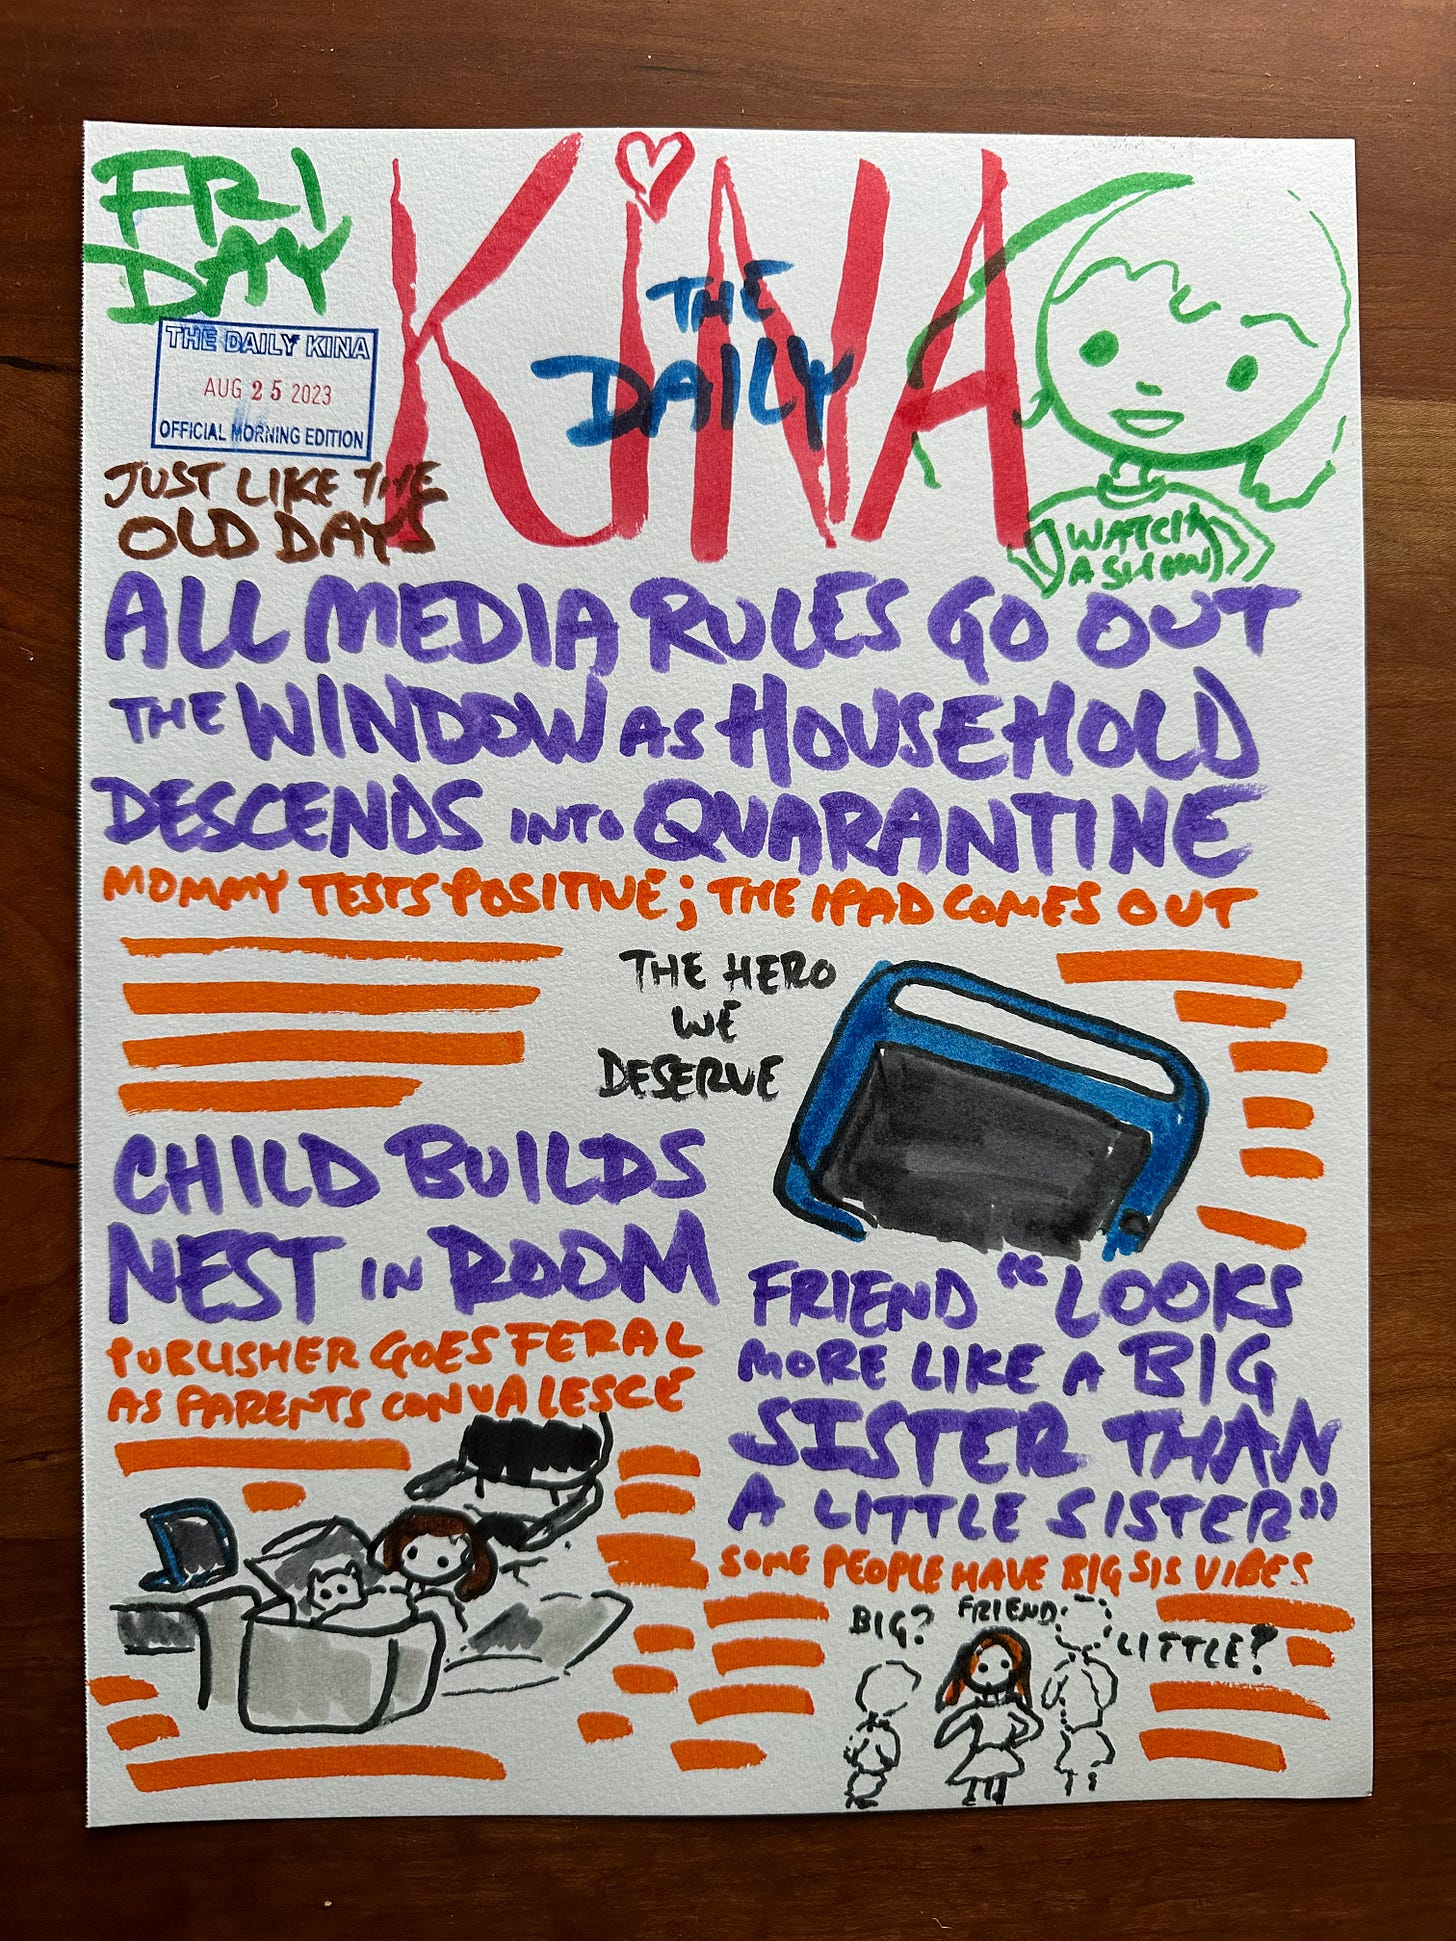 FRI
DAY
THE DAILY KINA
AUG 25 2023
OFFICIAL MORNING EDITION
JUST LIKE THE
OLD DAYS
KiNA
THE
DAILY
WATCH
A SHOW
ALL MEDIA RULES GO OUT
THE WINDOW AS HOUSEHOLD
DESCENDS INTO QUARANTINE
MOMMY TESTS POSITIVE; THE IPAD COMES OUT
THE HERO
WE
DESERVE
CHILD BUILDS
NEST IN ROOM
PUBLISHER GOES FERAL
AS PARENTS CONVALESCE
FRIEND "LOOKS
MORE LIKE A BIG
SISTER THAN
A LITTLE SISTER"
SOME PEOPLE HAVE BIG SIS VIBES
BIG?
FRIEND
LITTLE?